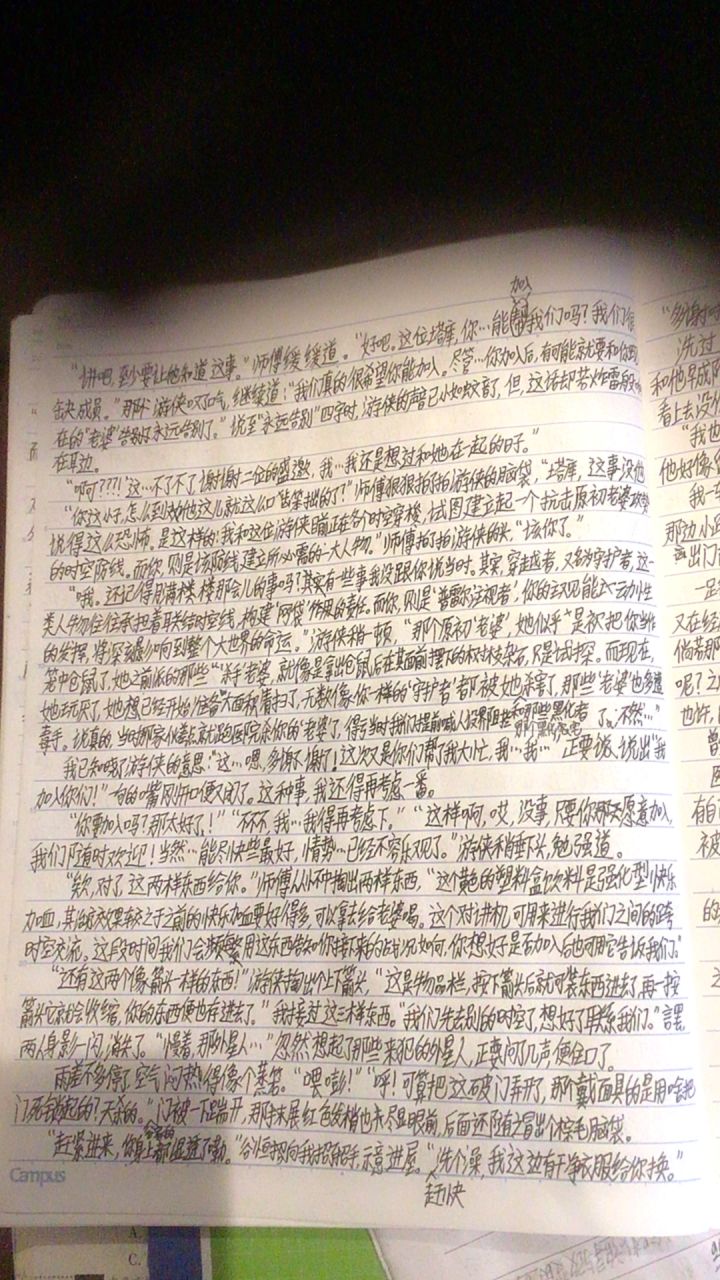 加
"讲吧,至少要让他知道这事。"师傅缓缓道。"好吧。这位塔库,你…能加我们吗?我们很
缺成员。"那个游侠叹了气,继续道:"我们真的很希望你能加入。尽管…你加入后,有可能就要和你现
在的"老婆"告别,永远告别了。"说至"永远告别"四字时,游侠的声音已小如蚊音了,但,这话却若炸雷般
在耳边。
"啊???!这…不了不了,谢谢二位的盛邀,我…我还是想过和她在一起的日子。"
"你这小子,怎么到她这儿就这么口 出的了?"师傅狠狠拍拍游侠的脑袋,"塔库,这事没他
说得这么恐怖。是这样的:我和这位游侠目前正在各个时空穿梭,试图建立起一个抗击原初老婆攻势
的时空防线。而你,则是该防线建立所必需的一大人物。"师傅拍拍游侠的头,"该你了。"
"哦。还记得别墅楼 那会儿的事吗?其实有一些事我没跟你说当时。其实,穿越者,又名守护者,这一
类人物往往承担着联结时空线,构建"网袋"作用的责任。而你,则是'普雷尔注视者',你的 能
的发挥,将深刻影响到整个大世界的命运。"游侠稍一顿,"那个原初'老婆',她似乎是把你当作
笼中仓鼠了,她之前派的那些"杀手"老婆,就像是拿出仓鼠后在其面前摆下的木材杂石,只是试探。而现在,
她玩厌了,她想已经开始 大面积清扫了,无数像你一样的'守护者'都被她杀害了,那些'老婆'也多遭
毒手。说真的,当时那家伙差点就跑医院杀你的'老婆'了,得亏当时我们提前喊人设界阻拦和那些黑化者 了。不然…"
我已知晓了游侠的意思:"这…嗯,多谢,谢了!这次又是你们帮了我大忙,我…我…"正要说入说出"我
加入你们!"句的嘴刚开口便又闭了。这种事,我还得再考虑一番。
"你要加入吗?那太好了!""不不,我…我得再考虑下。""这样啊,哎,没事,只要你那天愿意加入,
我们随时欢迎!当然…能尽快些最好,情势…已经不容乐观了。"游侠稍垂下头,勉强道。
"欸,对了,这两样东西给你。"师傅从怀中掏出两样东西,"这个黄色的塑料盒饮料是强化型快乐
加血,其治疗效果较之于之前的快乐加血要好得多,可以拿去给老婆喝。这个对讲机,可用来进行我们之间的跨
时空交流。这段时间我们会频繁用这东西告知你接下来的战况如何,你想好是否加入后也可用它告诉我们。"
"还有这两个像箭头一样的东西!"游侠掏出个上下箭头,"这是物品栏,按下箭头后就可装东西进去了,再一按
箭头它就会收缩,你的东西便也存进去了。"我接过这三样东西。"我们先去别的时空了,想好了联系我们。"言罢,
两人身影一闪,消失了。"慢着,那外星人…"忽然想起了那些来犯的外星人,正要问几声便住口了。
雨差不多停了,空气闷热得像个蒸笼。"喂!嘭!""呼!可算把这破门弄开了,那个戴面具的是用啥把
门死锁起的?天杀的。"门被一下踹开,那年末展红色发梢也未尽显眼前,后面还附有之冒出个棕毛脑袋。
"赶紧进来,你身上都湿透了嘞。"谷恒招向我招招手,示意进屋。"洗个澡,我这边有干净衣服给你换。"
赶快
Campus
"多谢
洗过
和他早成
看上去没
"我也
他好像
我一
那边小
出门
一足
又在经
倘若那
呢?之
也许,
曾
医
有自
被
的
之
A.
C.